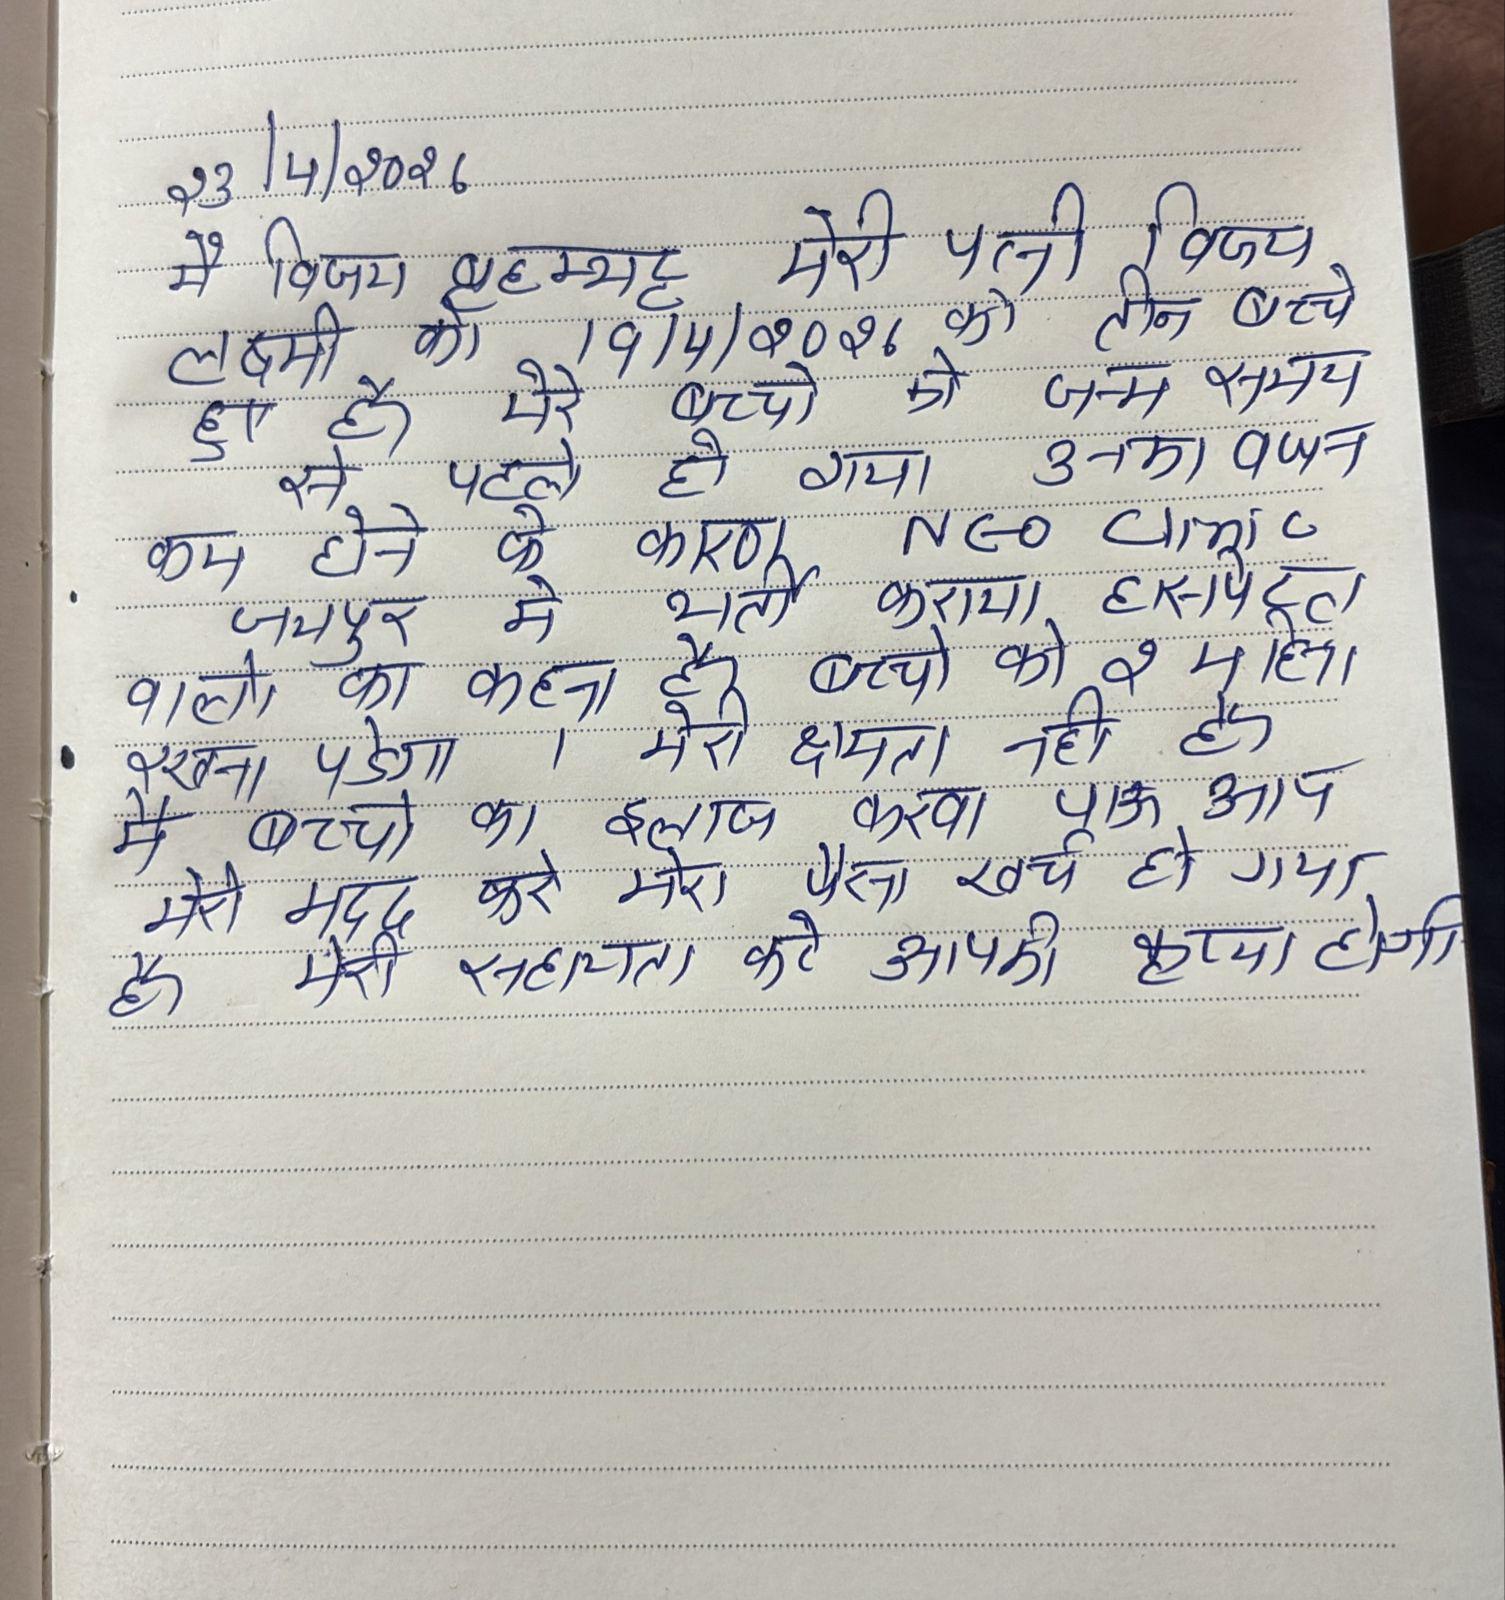 २३/4/२०२६
मै विजय ब्रहमभट्ट मेरी पत्नी विजय
लक्ष्मी को 19/4/२०२६ को तीन बच्चे
हुए है मेरे बच्चो को जन्म समय
से पहले हो गया उनका वजन
कम होने के कारण NEO Clinic
जयपुर मे भर्ती कराया हास्पिटल
वालो का कहना है बच्चो को २ महिना
रखना पडेगा । मेरी क्षमता नही है
मै बच्चो का इलाज करवा पाऊ आप
मेरी मदद करे मेरा पैसा खर्च हो गया
है मेरी सहायता करे आपकी कृप्या होगी